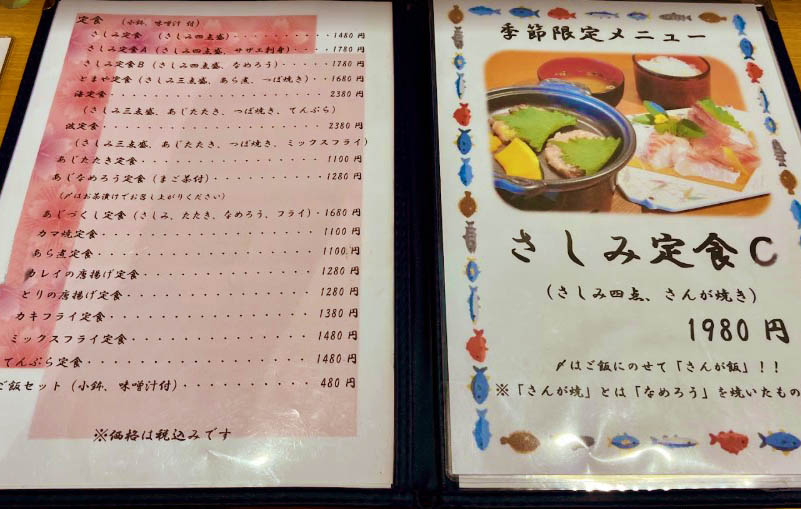 定食 (小鉢、味噌汁 付)
さしみ定食 (さしみ四点盛)・・・・・・・・・・1480 円
さしみ定食A (さしみ四点盛、サザエ刺身)・・・・1780 円
さしみ定食B (さしみ四点盛、なめろう)・・・・・1780 円
とまや定食 (さしみ三点盛、あら煮、つぼ焼き)・・1680 円
海定食・・・・・・・・・・・・・・・・・・・・2380 円
(さしみ三点盛、あじたたき、つぼ焼き、てんぷら)
波定食・・・・・・・・・・・・・・・・・・・・2380 円
(さしみ三点盛、あじたたき、つぼ焼き、ミックスフライ)
あじたたき定食・・・・・・・・・・・・・・・・1100 円
あじなめろう定食 (まご茶付)・・・・・・・・・・1280 円
(〆はお茶漬けでお召し上がりください)
あじづくし定食 (さしみ、たたき、なめろう、フライ)・1680 円
カマ焼定食・・・・・・・・・・・・・・・・・・1100 円
あら煮定食・・・・・・・・・・・・・・・・・・1100 円
カレイの唐揚げ定食・・・・・・・・・・・・・・1280 円
とりの唐揚げ定食・・・・・・・・・・・・・・・1280 円
カキフライ定食・・・・・・・・・・・・・・・・1380 円
ミックスフライ定食・・・・・・・・・・・・・・1480 円
てんぷら定食・・・・・・・・・・・・・・・・・1480 円
ご飯セット (小鉢、味噌汁付)・・・・・・・・・・480 円
※価格は税込みです
季節限定メニュー
さしみ定食C
(さしみ四点、さんが焼き)
1980 円
〆はご飯にのせて「さんが飯」！！
※「さんが焼」とは「なめろう」を焼いたもの